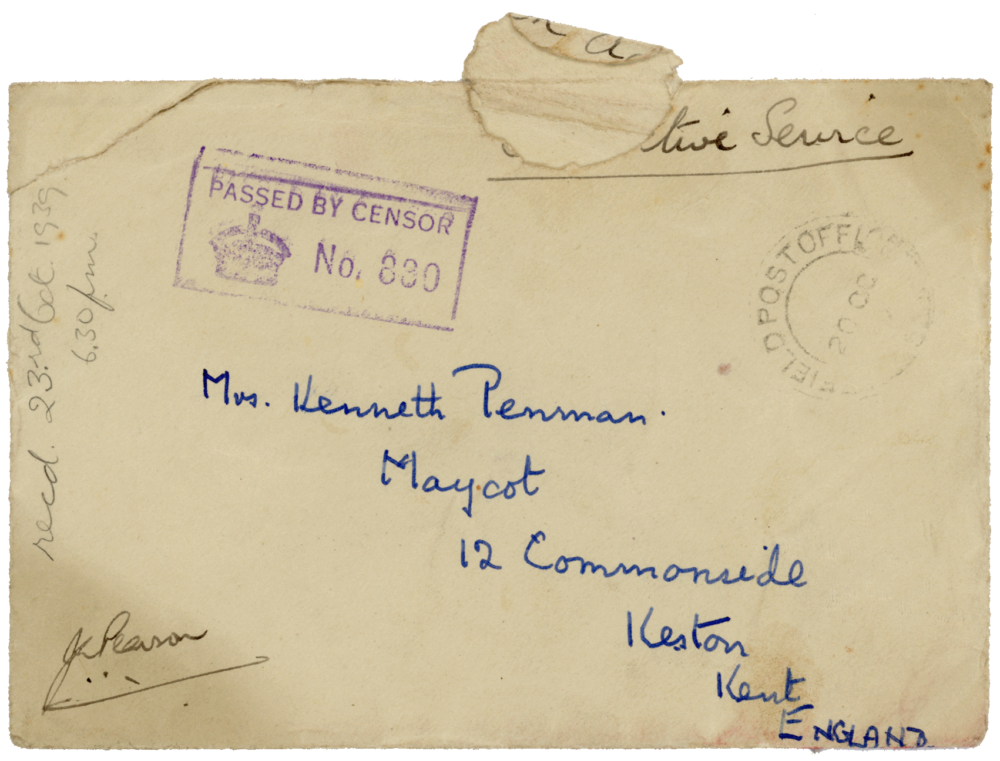 tive Service
PASSED BY CENSOR
No. 830
FIELD POST OFFICE
20 OC
recd. 23rd Oct. 1939
6.30 p.m.
Mrs. Kenneth Penman.
Maycot
12 Commonside
Keston
Kent
ENGLAND.
Pearson